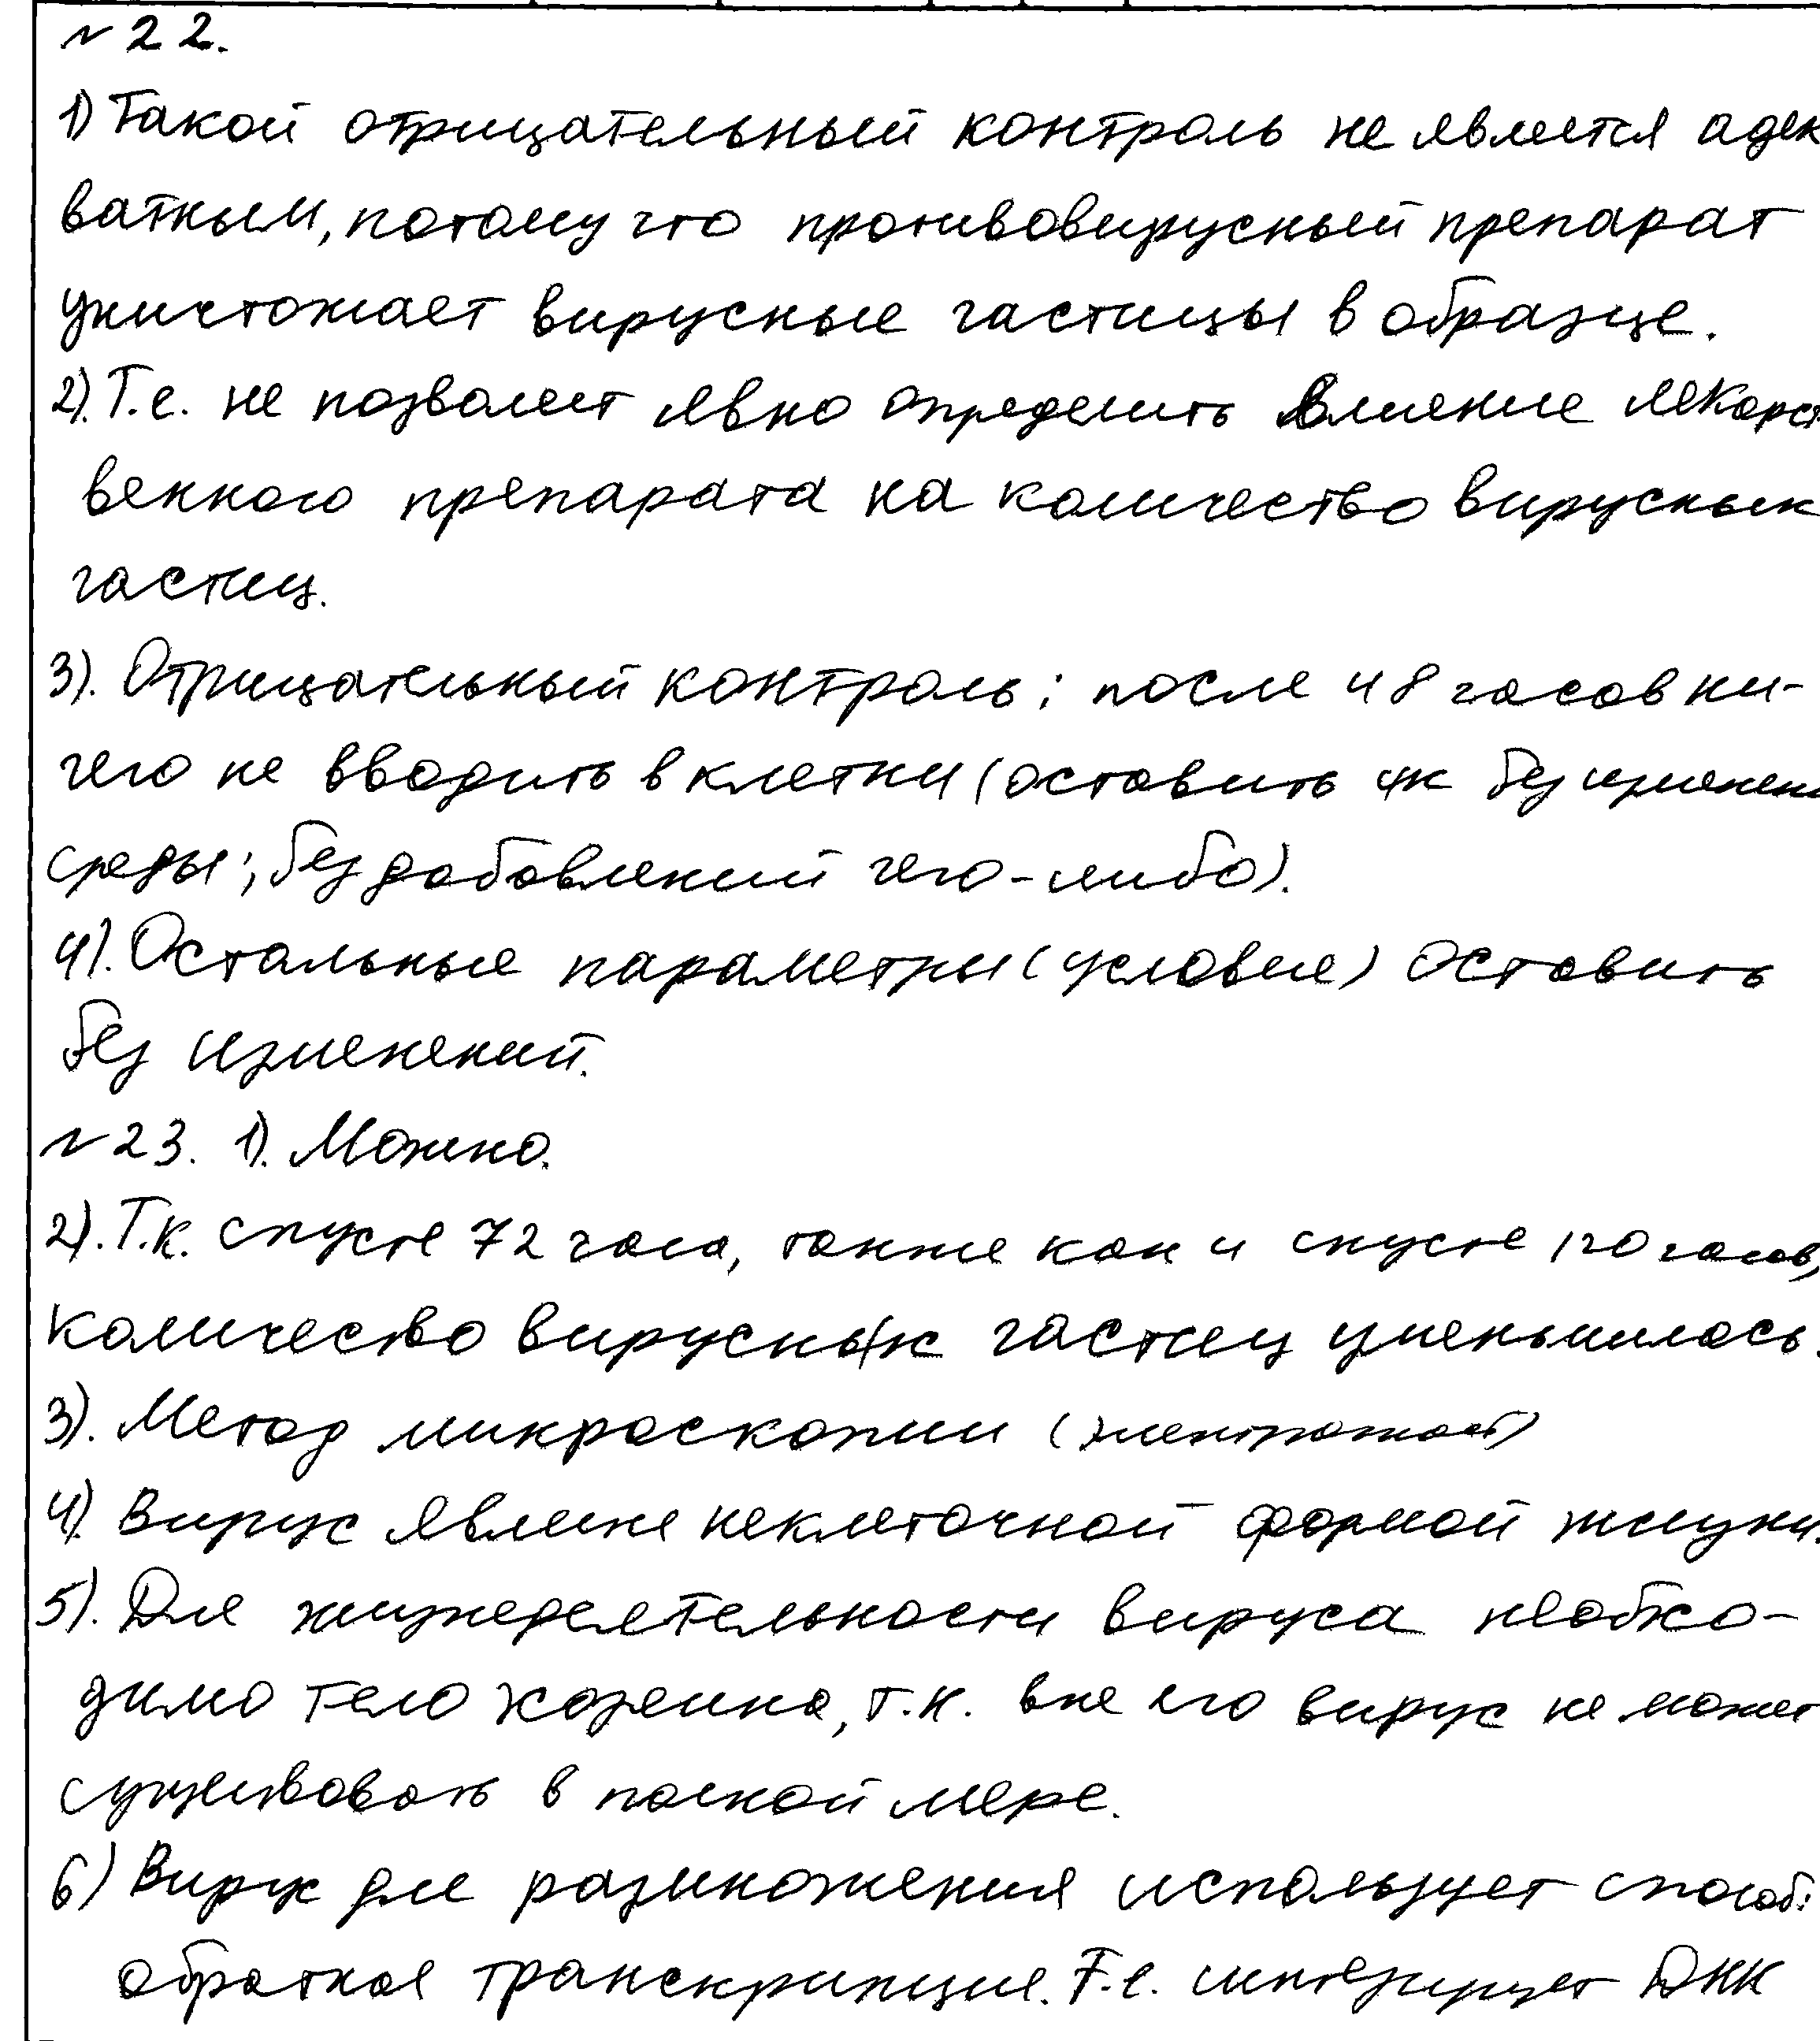 № 22.
1) Такой отрицательный контроль не является адек
ватным, потому что противовирусный препарат
уничтожает вирусные частицы в образце.
2). Т.е. не позволяет явно определить влияние лекарст
венного препарата на количество вирусных
частиц.
3). Отрицательный контроль: после 48 часов ни-
чего не вводить в клетки (оставить их без изменени
среды; без добавлений чего-либо).
4). Остальные параметры (условие) оставить
без изменений.
№ 23. 1). Можно.
2). Т.к. спустя 72 часа, также как и спустя 120 часов,
количество вирусных частиц уменьшилось.
3). Метод микроскопии (электронной)
4) Вирус является неклеточной формой жизни.
5). Для жизнедеятельности вируса необхо-
димо тело хозяина, т.к. вне его вирус не может
существовать в полной мере.
6) Вирус для размножения использует способ:
обратная транскрипция. Т.е. синтезирует ДНК